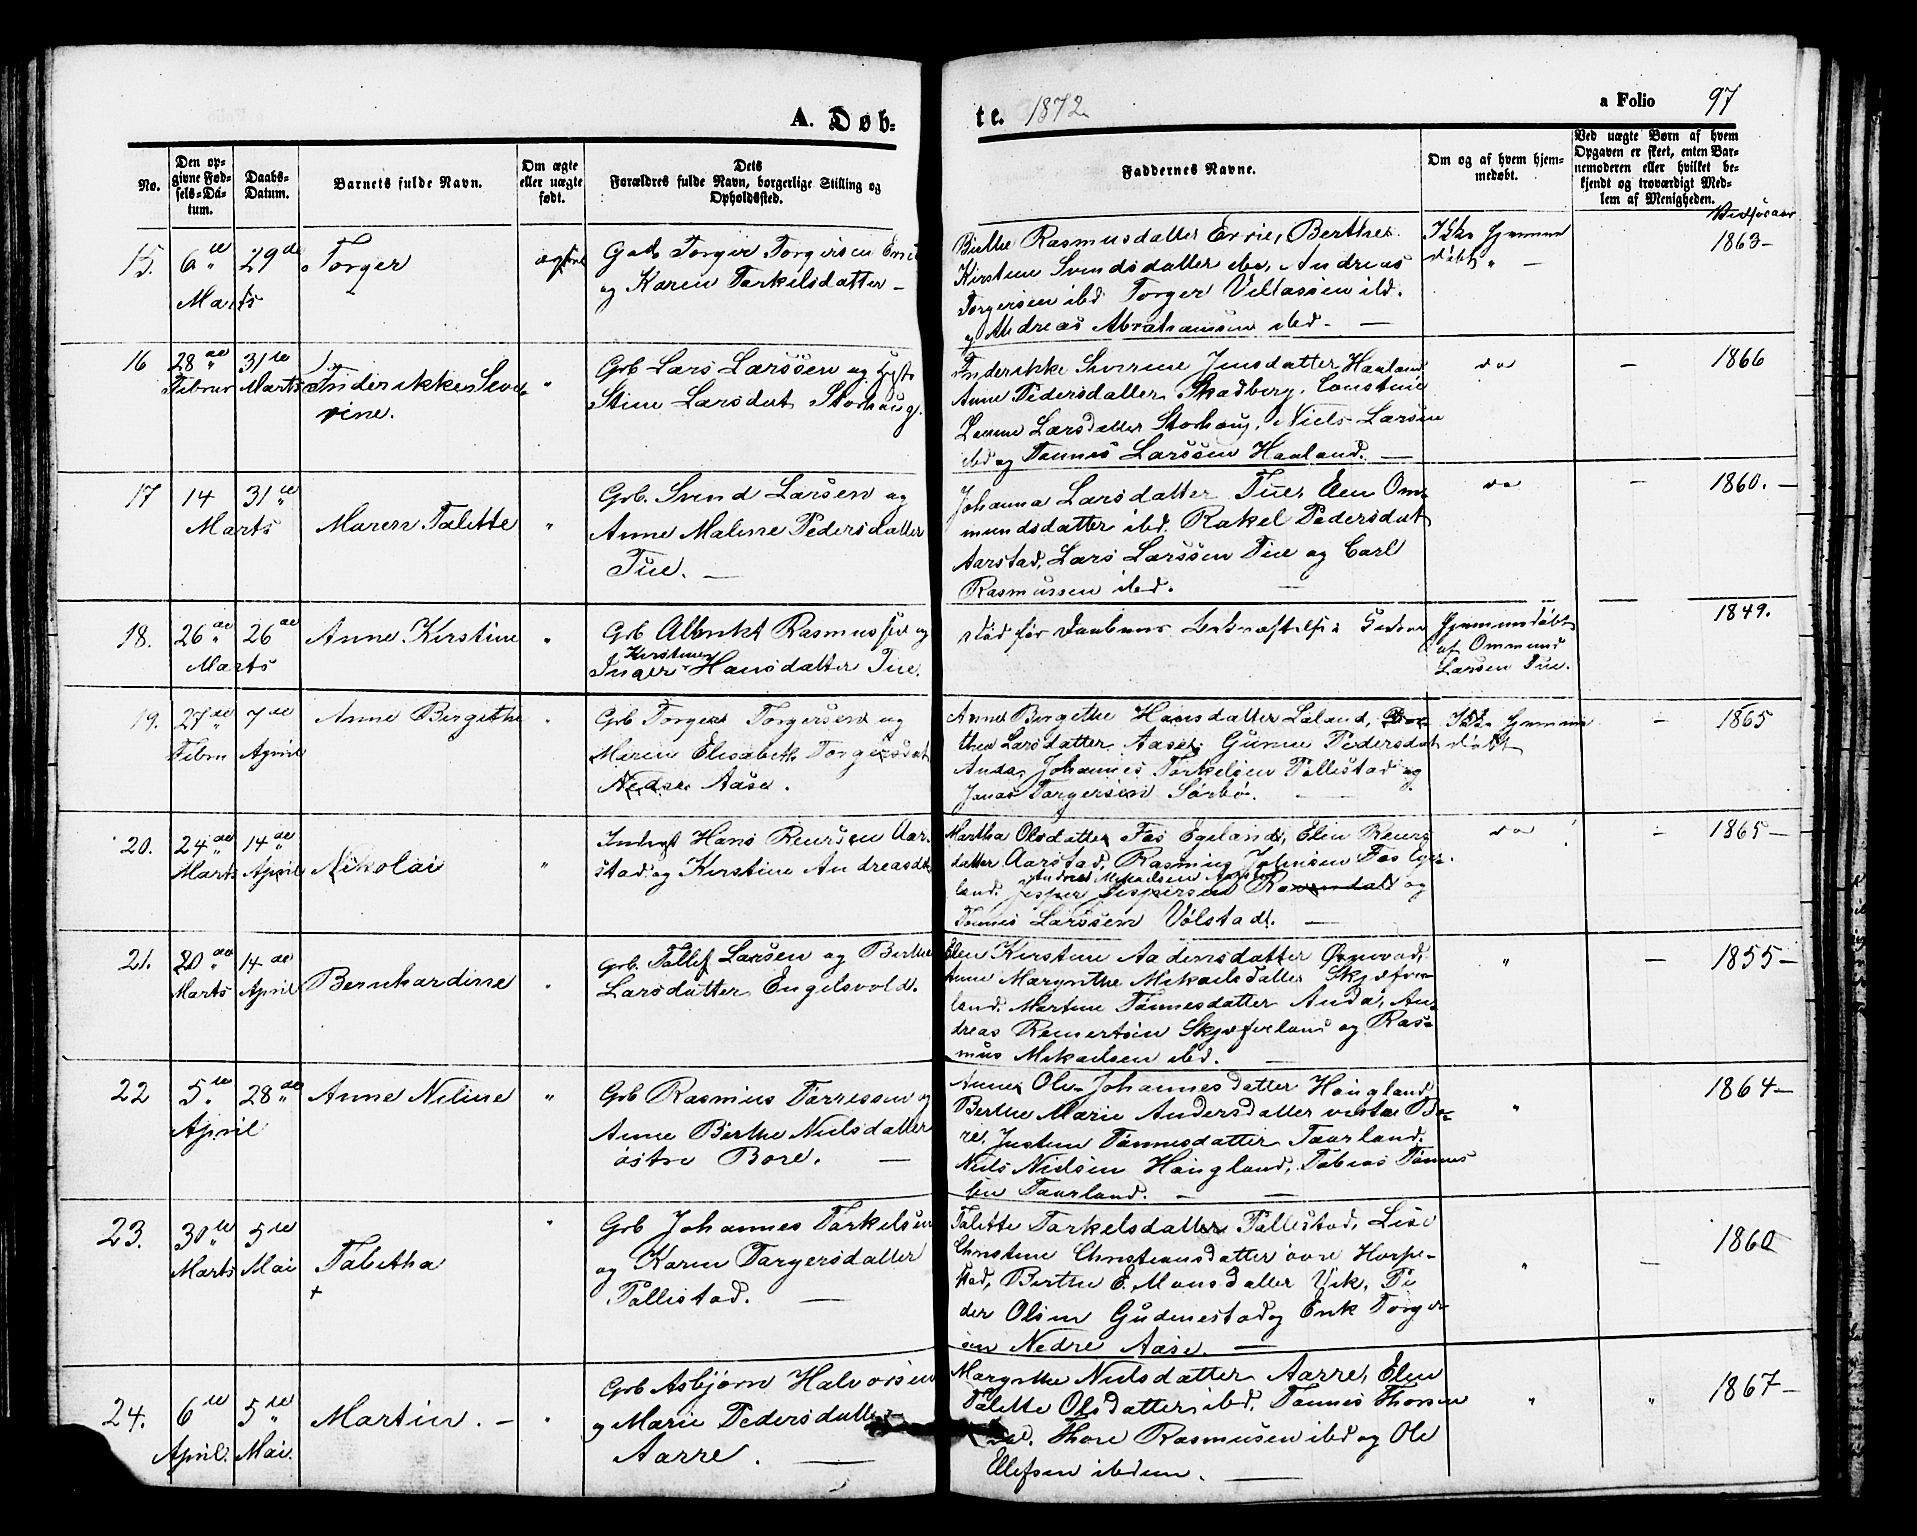 A. Døb-
te. 1872
a Folio 97
No.
Den op-
givne Fød-
sels-Da-
tum.
Daabs-
Datum.
Barnets fulde Navn.
Om ægte
eller uægte
født.
Dets
Forældres fulde Navn, borgerlige Stilling og
Opholdssted.
Faddernes Navne.
Om og af hvem hjem-
medøbt.
Ved uægte Børn af hvem
Opgaven er skeet, enten Bar-
nemoderen eller hvilket be-
kjendt og troværdigt Med-
lem af Menigheden.
15.
6te
Marts
29de
Torger
ægte
Torger Torgersen
og Karen Tarkelsdatter
Berthe Rasmusdatter Errie, Berthe
Kirstine Svendsdatter ibd, Andreas
Torgersen ibd Torger Villassen ibd.
og Andreas Abrahamsen ibd.
Ikke hjemme
døbt
1863
16
28de
Februar
31te
Marts
Frederikke Seve-
rine.
Grb Lars Larssen og Hst.
Stine Larsdat Storhaug.
Frederikke Sverine Jensdatter Haaland
Anne Pedersdatter Skadberg, Constine
Larsdatter Storhaug, Niels Larsen
ibd og Tønnes Larssen Haaland.
do
1866
17
14
Marts
31te
Maren Talette
Grb. Svend Larsen og
Anne Malene Pedersdatter
Tue.
Johanna Larsdatter Tue, Elen Om-
mundsdatter ibd. Rakel Pedersdat
Aarstad, Lars Larssen Tue og Carl
Rasmussen ibd.
do
1860.
18.
26de
Marts
26de
Anne Kirstine
Grb Albrikt Rasmussen og
Kirstine
Inger Hansdatter Tue.
død før Daabens Bekræftelse i Kirken
Hjemmedøbt
af Ommund
Larsen Tue.
1849.
19.
27de
Febru
7de
April
Anne Bergithe
Grb Torger Torgersen og
Maren Elisabeth Torgersdat
Nedre Aase.
Anne Bergethe Hansdatter Laland,
Larsdatter Aase, Gunne Pedersdat
Anda, Johannes Tarkelsen Pollestad og
Jonas Torgersen Sørbø.
Ikke hjemme
døbt
1865
20.
24de
Marts
14de
April
Nikolai
Hans Reiersen Aar-
stad og Kirstine Andreasdtr
Martha Olsdatter Fos Egeland, Elen Reiers
datter Aarstad, Rasmus Johnsen Fos Ege-
Andreas Mikaelsen Aarstad
land. Jesper Jespersen Ravndal og
Tønnes Larssen Vølstad.
do
1865
21.
20de
Marts
14de
April
Bernhardine
Grb. Tollef Larsen og Berthe
Larsdatter Engelsvold.
Elen Kirstine Aadensdatter
Anne Margrethe Mikaelsdatter Skjæfve-
land. Martine Tønnesdatter Anda, An-
dreas Reinertsen Skjæfveland og Ras-
mus Mikaelsen ibd.
1855
22
5te
April
28de
Anne Neline
Grb Rasmus Tørressen og
Anne Berthe Nielsdatter
østre Bore.
Anne Ole Johannesdatter Høigland
Berthe Marie Andersdatter vestre Bo-
re, Justine Tønnesdatter Taarland.
Niels Nielsen Høigland, Tobias Tønnes
sen Taarland.
1864
23.
30te
Marts
5te
Mai
Tabetha
+
Grb Johannes Tarkelsen
og Karen Torgersdatter
Pollestad.
Talette Tarkelsdatter Pollestad, Lise
Christine Christiansdatter øvre Horpe-
stad, Berthe E. Monsdatter Vik, Pe
der Olsen Gudmestad og Enk Torger
sen Nedre Aase.
1860
24.
6te
April.
5te
Mai.
Martin.
Grb Asbjørn Halvorsen
og Marie Pedersdatter
Aarre.
Margrethe Nielsdatter Aarre, Elen
Talette Olsdatter ibd, Tønnes Thorsen
ibd. Thore Rasmusen ibd og Ole
Ellefsen ibidem.
1867